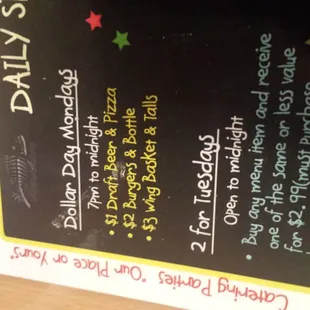 DAILY S
Dollar Day Mondays
7pm to midnight
• $1 Draft Beer & Pizza
• $2 Burgers & Bottle
• $3 Wing Basket & Talls
2 for Tuesdays
Open to midnight
• Buy any menu item and receive
one of the same or less value
for $2.99(must purchase
Catering Parties "Our Place or Yours"